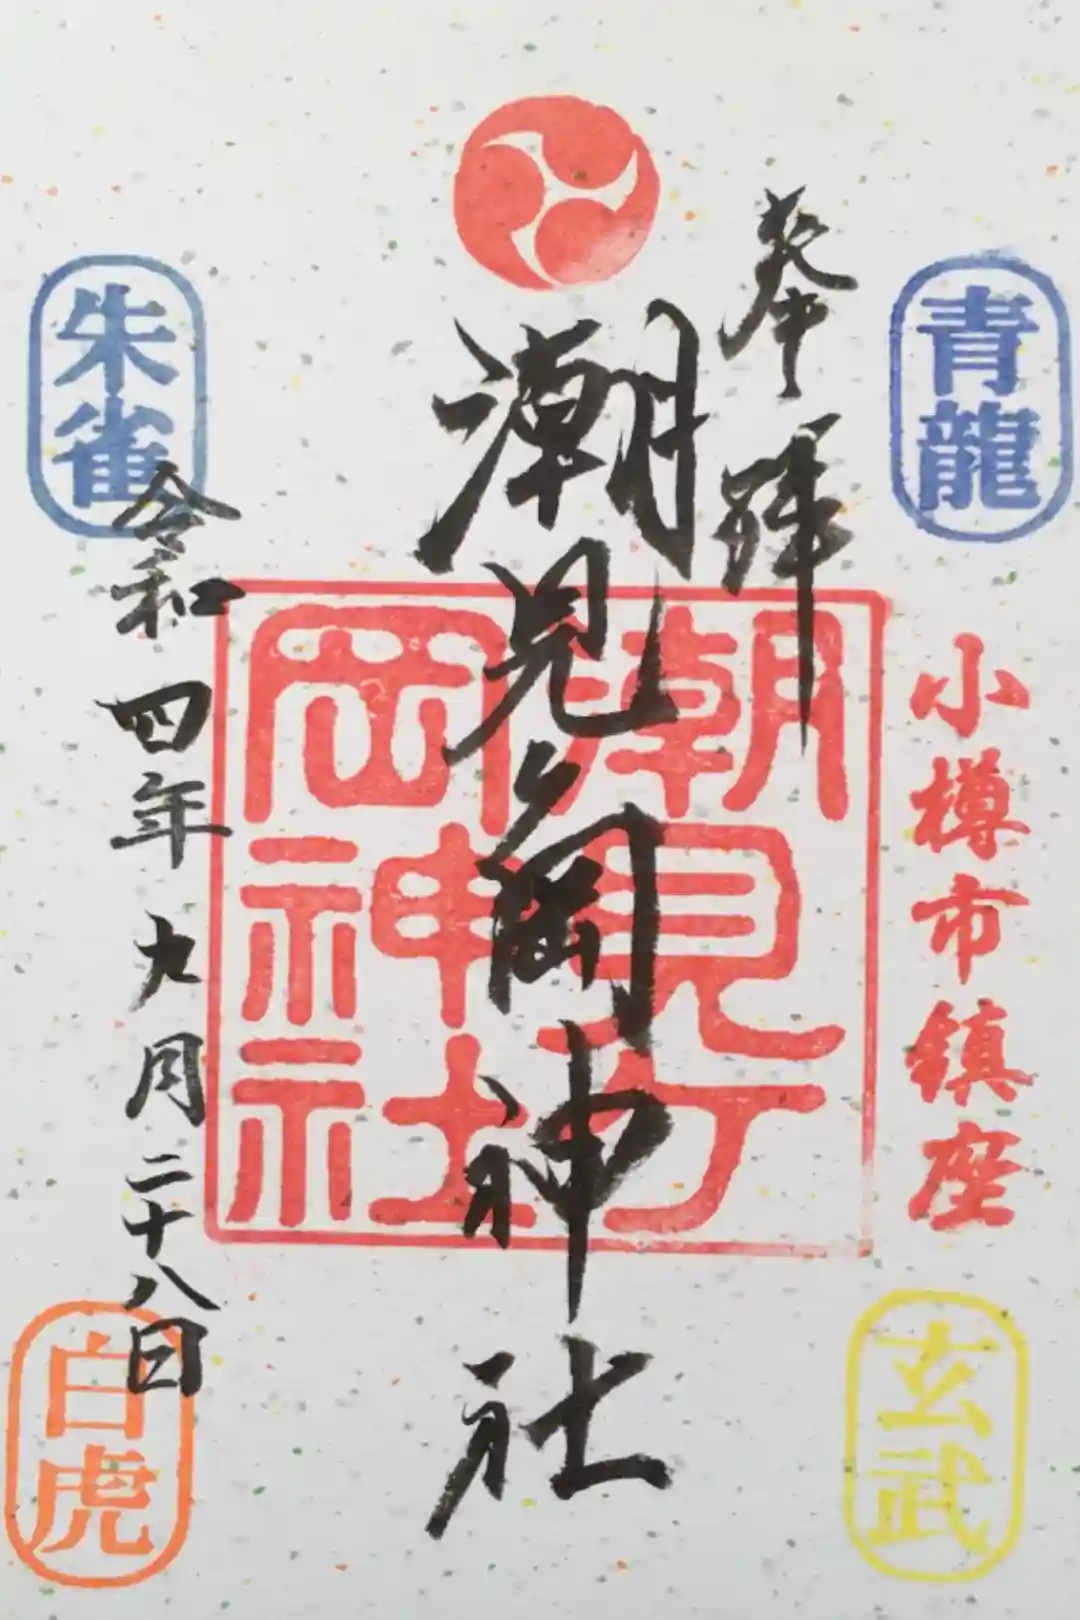 青龍
奉拝
小樽市鎮座
玄武
潮見ヶ岡神社
潮見ケ
岡神社
朱雀
令和四年九月二十八日
白虎